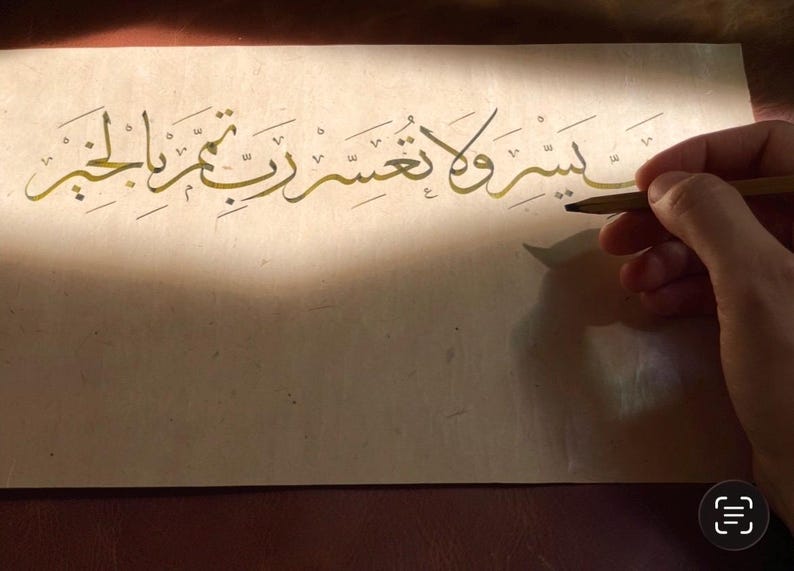 يَسِّرْ وَلَا تُعَسِّرْ رَبِّ تَمِّمْ بِالْخَيْرِ